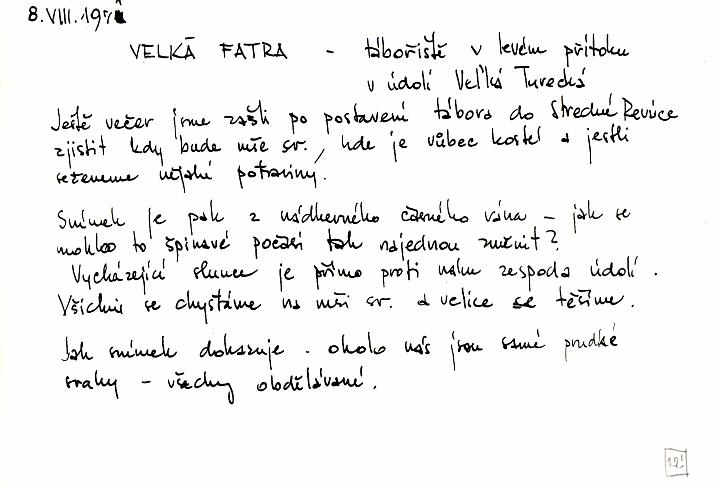 8.VIII.197
VELKÁ FATRA - tábořiště v levém přítoku
v údolí Veľká Turecká
Ještě večer jsme zašli po postavení tábora do Stredné Revúce
zjistit kdy bude mše sv., kde je vůbec kostel a jestli
seženeme nějaké potraviny.
Snímek je pak z nádherného časného rána - jak se
mohlo to špinavé počasí tak najednou změnit?
Vycházející slunce je přímo proti nám zespoda údolí.
Všichni se chystáme na mši sv. a velice se těšíme.
Jak snímek dokazuje - okolo nás jsou samé prudké
svahy - všechny obdělávané.